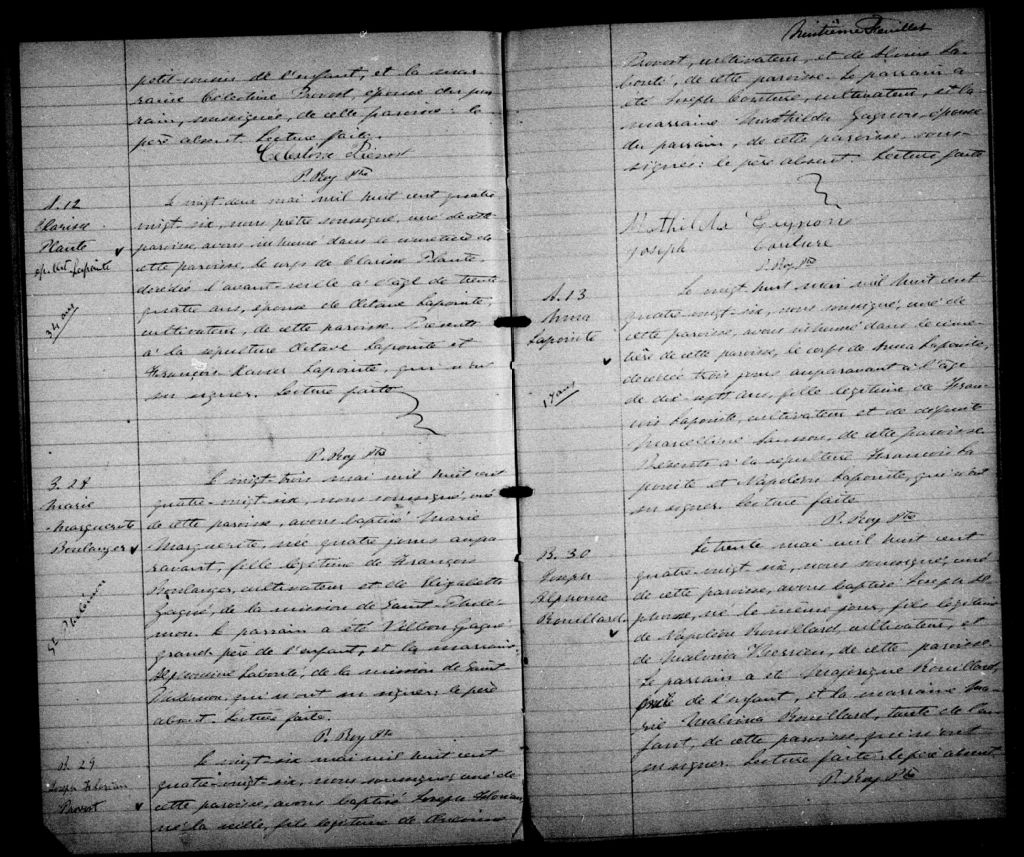 petit-cousin de l'enfant, et la mar-
raine Celestine Provost, epouse du par
rain, soussignée, de cette paroisse: le
père absent. Lecture faite.
Celestine
P. Roy Ptre
S. 12
Clarisse
Plante
Lapointe
34 ans
Le vingt-deux mai mil huit cent quatre
vingt-six, nous prêtre soussigné, curé de cette
paroisse, avons inhumé dans le cimetière de
cette paroisse, le corps de Clarisse Plante,
décédée l'avant-veille à l'âge de trente
quatre ans, épouse de Octave Lapointe,
cultivateur, de cette paroisse. Présents
à la sépulture Octave Lapointe et
François Xavier Lapointe, qui n'ont
su signer. Lecture faite
P. Roy Ptre
B. 28
Marie
Marguerete
Boulanger
St Philémon
Le vingt-trois mai mil huit cent
quatre-vingt-six, nous soussigné, curé
de cette paroisse, avons baptisé Marie
Marguerete, née quatre jours aupa
ravant, fille légitime de François
Boulanger, cultivateur et de
Gagné, de la mission de Saint-Phile
mon. Le parrain a été Gagné
grand père de l'enfant, et la marraine
Labonté, de la mission de Saint
qui n'ont su signer; le père
absent. Lecture faite.
P. Roy Ptre
B. 29
Joseph Florian
Provost
Le vingt-six mai mil huit cent
quatre-vingt-six, nous soussigné, curé de
cette paroisse, avons baptisé Joseph Florian,
né la veille, fils légitime de
feuillet
Provost, cultivateur, et de La-
bonté, de cette paroisse. Le parrain a
été Joseph Couture, cultivateur, et la
marraine Mathilda Gagnon, épouse
du parrain, de cette paroisse, sous-
signés: le père absent. Lecture faite
Mathilda Gagnon
Joseph Couture
P. Roy Ptre
S. 13
Anna
Lapointe
17 ans
Le vingt huit mai mil huit cent
quatre-vingt-six, nous soussigné, curé de
cette paroisse, avons inhumé dans le cime-
tière de cette paroisse, le corps de Anna Lapointe,
décédée trois jours auparavant à l'âge
de dix-sept ans, fille légitime de Fran-
cois Lapointe, cultivateur et de défunte
Marcelline de cette paroisse
Présents à la sépulture François La
pointe et Napoléon Lapointe, qui n'ont
su signer. Lecture faite
P. Roy Ptre
B. 30
Joseph
Alphonse
Rouillard
Le trente mai mil huit cent
quatre-vingt-six, nous soussigné, curé
de cette paroisse, avons baptisé Joseph Al
phonse, né le même jour, fils légitime
de Napoléon Rouillard, cultivateur, et
de Malvina Therrien, de cette paroisse.
Le parrain a été Rouillard,
de l'enfant, et la marraine
Malvina Rouillard, tante de l'en
fant, de cette paroisse qui n'ont
su signer. Lecture faite: le père absent
P. Roy Ptre